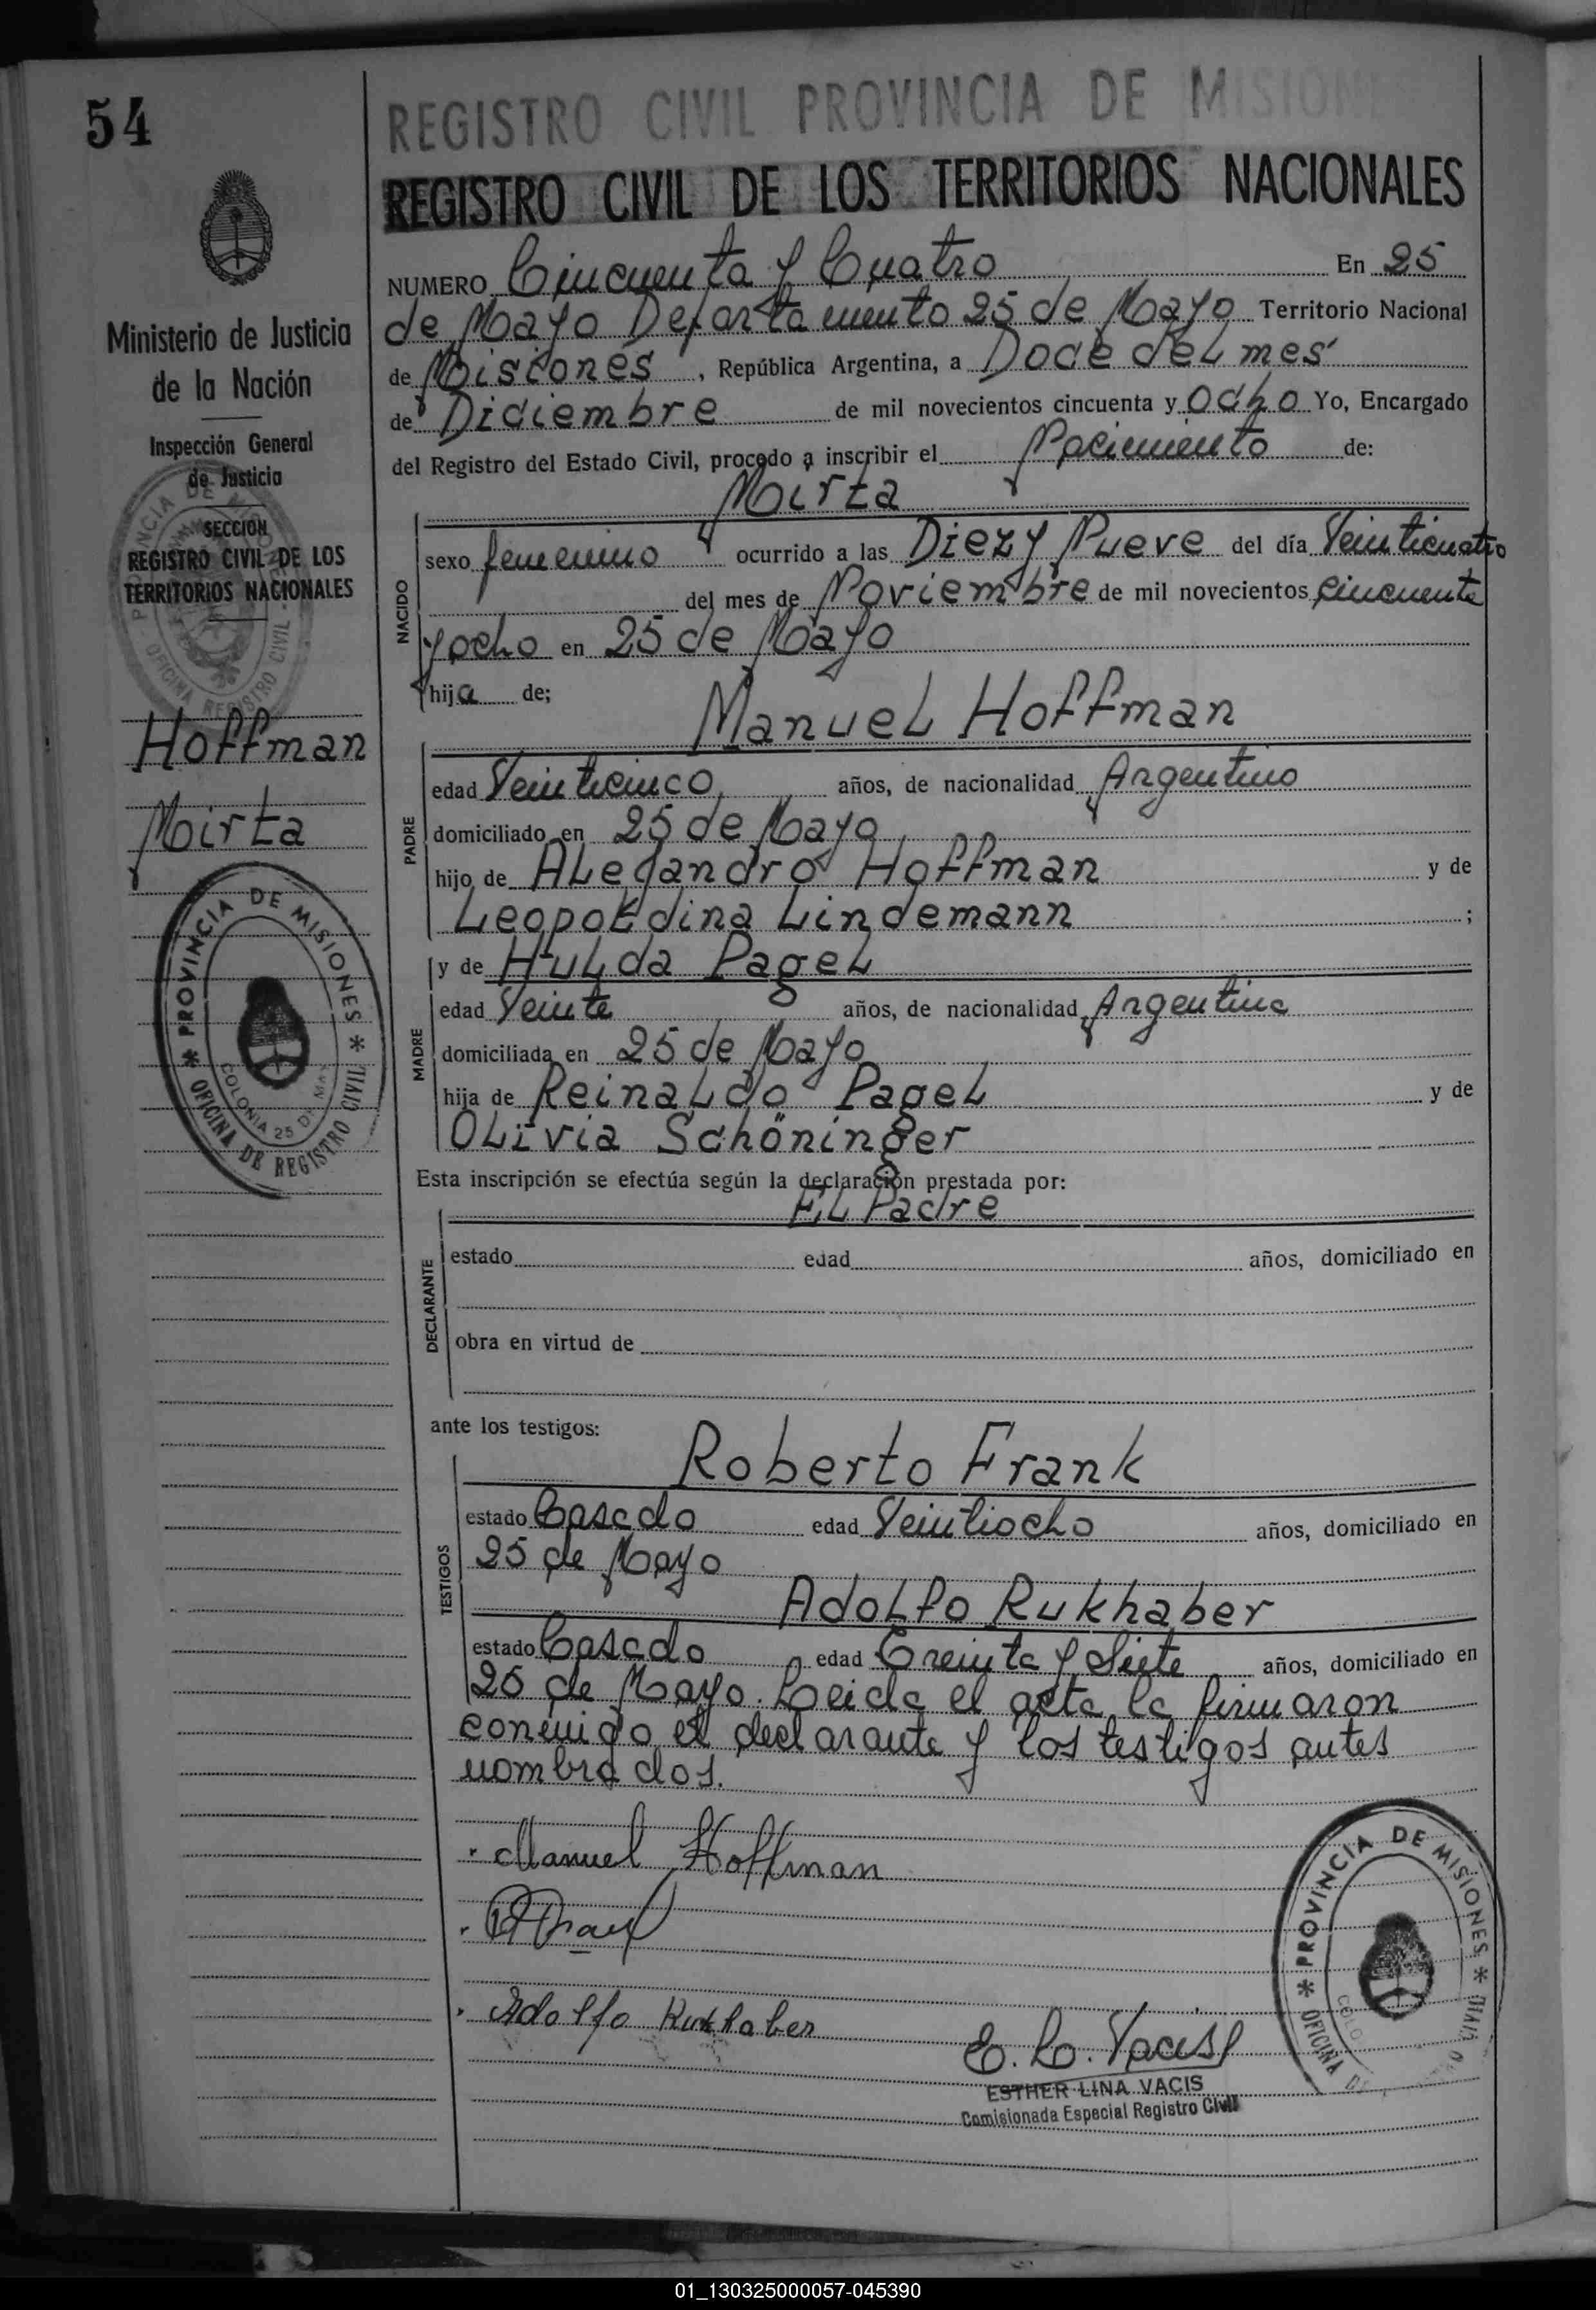 54
REGISTRO CIVIL PROVINCIA DE MISION
REGISTRO CIVIL DE LOS TERRITORIOS NACIONALES
NUMERO Cincuenta y Cuatro En 25
de Mayo Departamento 25 de Mayo Territorio Nacional
de Misiones, República Argentina, a Doce del mes
de Diciembre de mil novecientos cincuenta y Ocho Yo, Encargado
del Registro del Estado Civil, procedo a inscribir el Nacimiento de:
Mirta
NACIDO
sexo femenino ocurrido a las Diez y Nueve del día Veinticuatro
del mes de Noviembre de mil novecientos cincuenta
y ocho en 25 de Mayo
hija de;
Manuel Hoffman
PADRE
edad Veinticinco años, de nacionalidad Argentino
domiciliado en 25 de Mayo
hijo de Alejandro Hoffman y de
Leopoldina Lindemann ;
y de Hulda Pagel
MADRE
edad Veinte años, de nacionalidad Argentina
domiciliada en 25 de Mayo
hija de Reinaldo Pagel y de
Olivia Schöninger
Esta inscripción se efectúa según la declaración prestada por:
El Padre
DECLARANTE
estado edad años, domiciliado en
obra en virtud de
ante los testigos:
Roberto Frank
TESTIGOS
estado Casado edad Veintiocho años, domiciliado en
25 de Mayo
Adolfo Rukhaber
estado Casado edad Treinta y Siete años, domiciliado en
25 de Mayo. Leida el acta la firmaron
conmigo el declarante y los testigos antes
nombrados.
Manuel Hoffman
Adolfo Rukhaber
E. L. Vacis
ESTHER LINA VACIS
Comisionada Especial Registro Civil
Ministerio de Justicia
de la Nación
Inspección General
de Justicia
SECCION
REGISTRO CIVIL DE LOS
TERRITORIOS NACIONALES
Hoffman
Mirta
* PROVINCIA DE MISIONES *
OFICINA DE REGISTRO CIVIL
COLONIA 25 DE MAY
* PROVINCIA DE MISIONES *
OFICINA
01_130325000057-045390